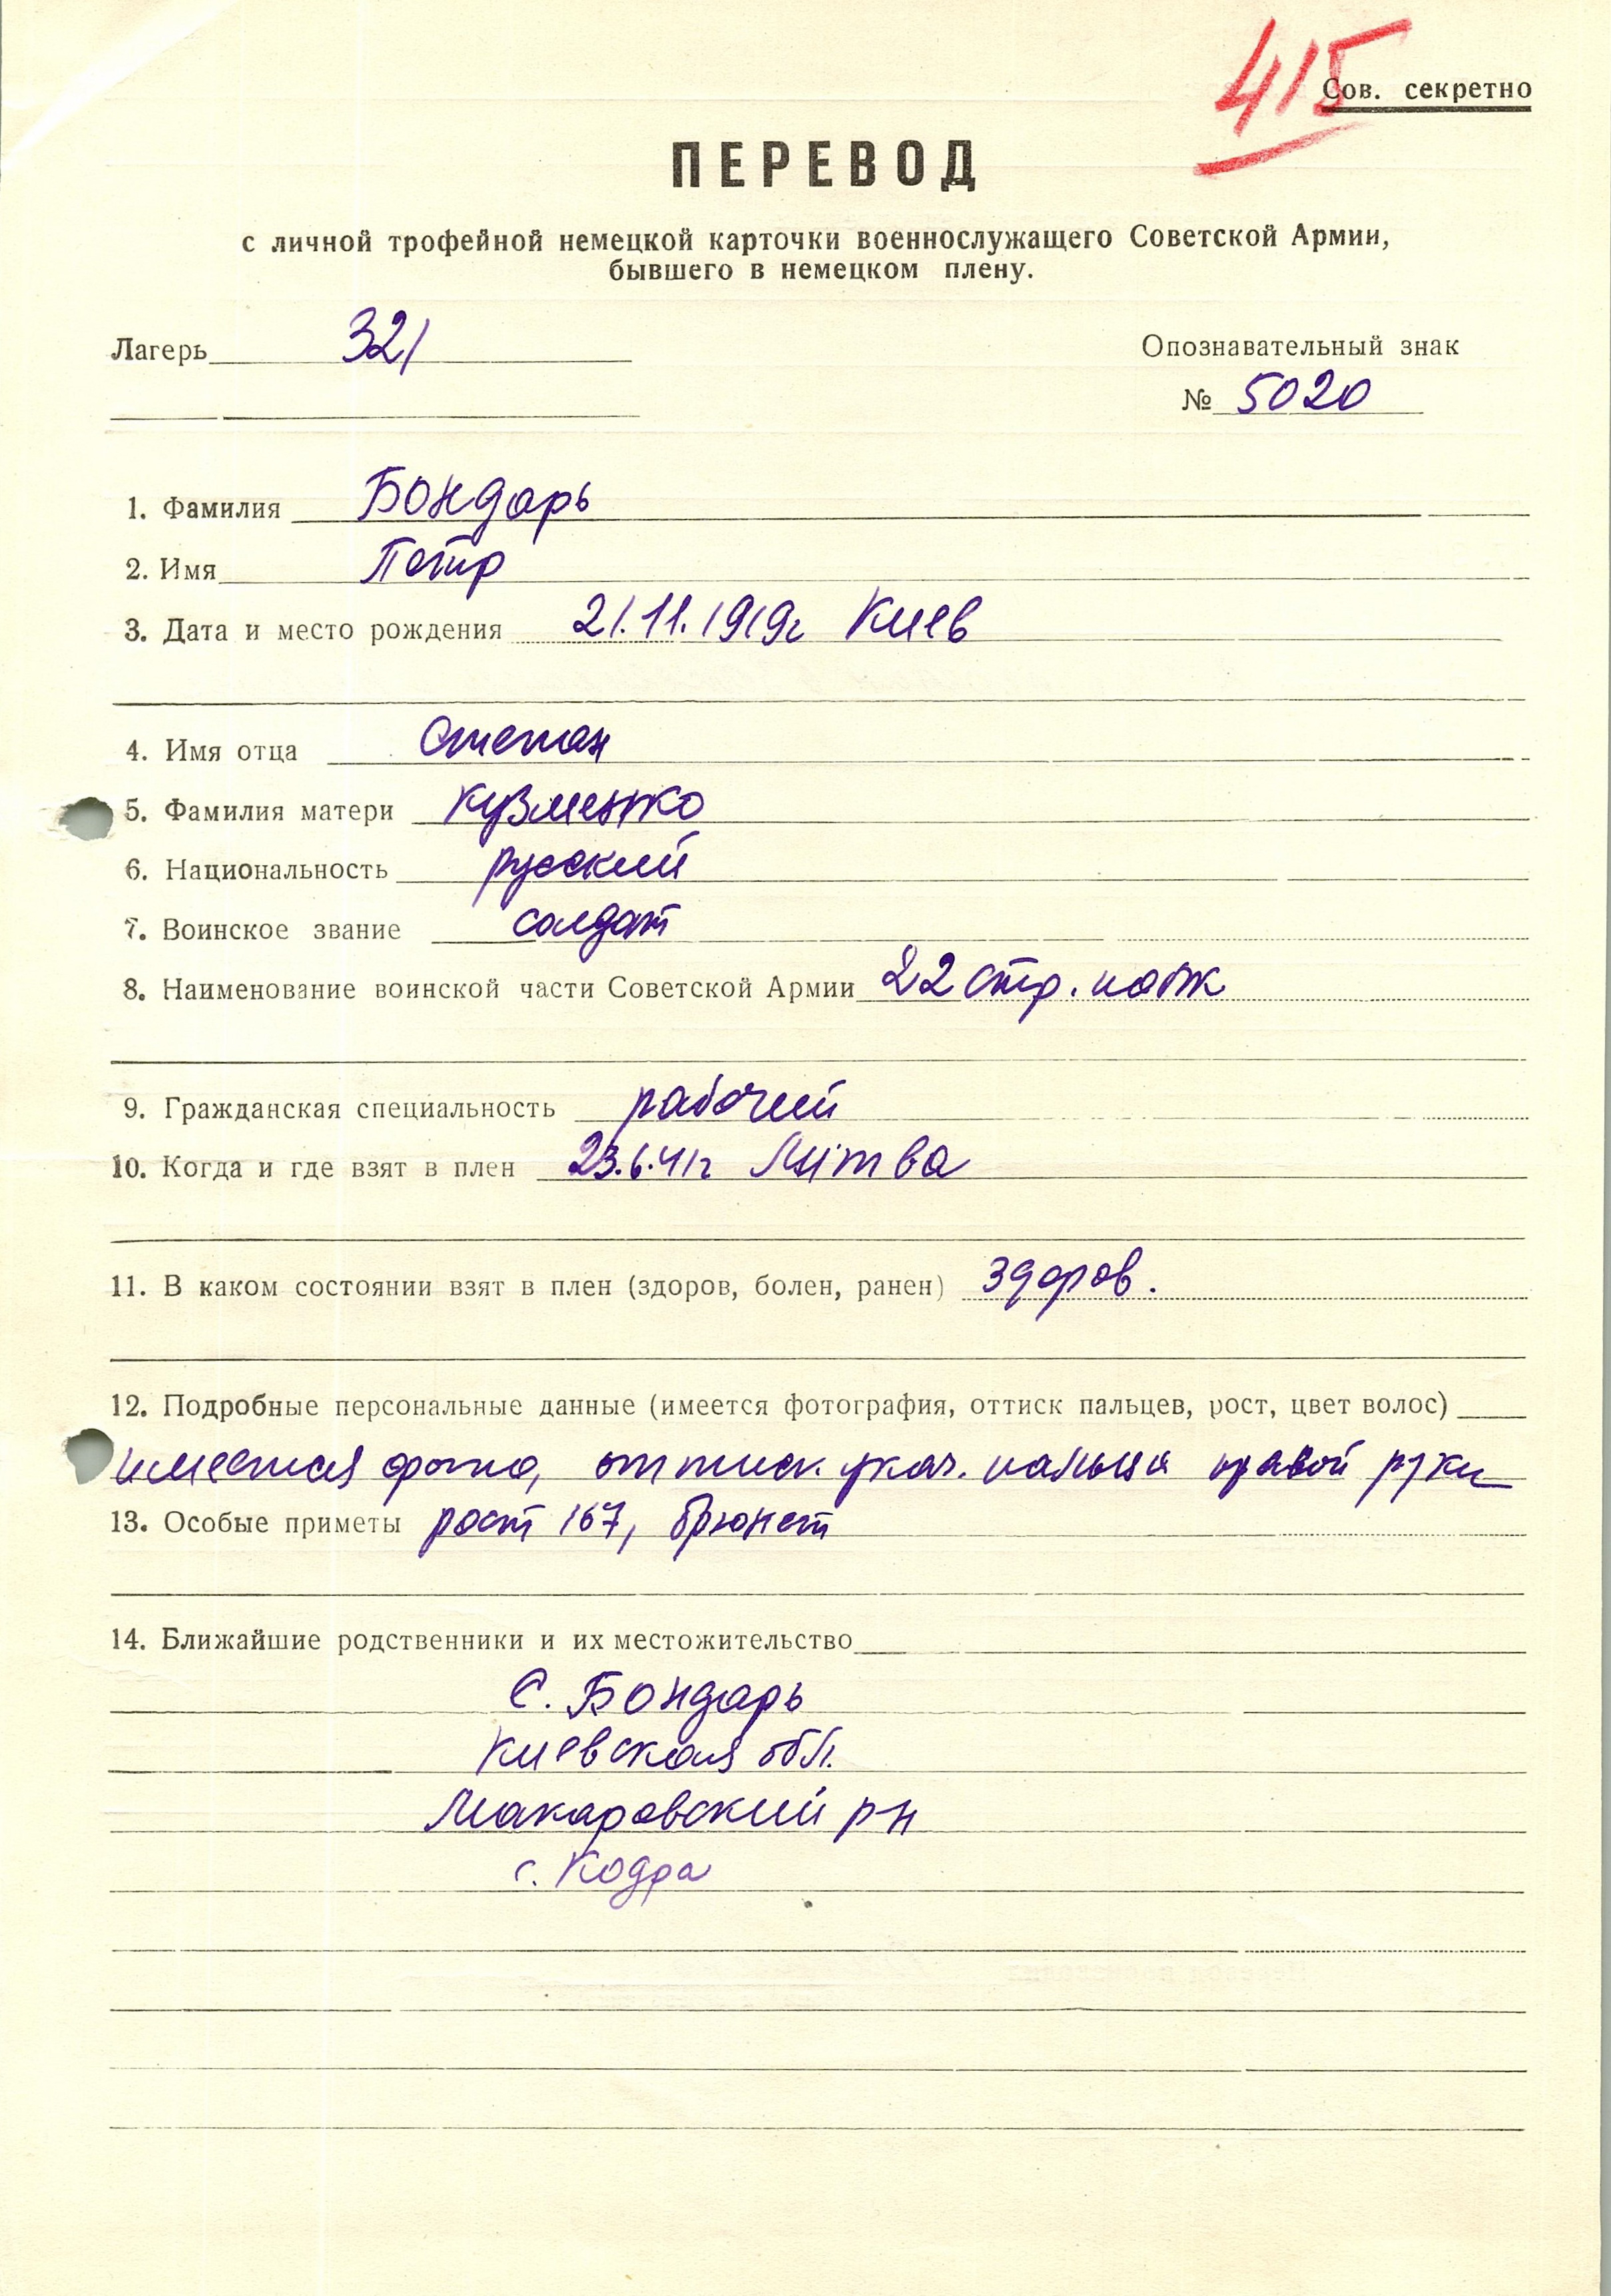 415
Сов. секретно
ПЕРЕВОД
с личной трофейной немецкой карточки военнослужащего Советской Армии,
бывшего в немецком плену.
Лагерь 321
Опознавательный знак
№ 5020
1. Фамилия Бондарь
2. Имя Петр
3. Дата и место рождения 21.11.1919г Киев
4. Имя отца Степан
5. Фамилия матери Кузменко
6. Национальность русский
7. Воинское звание солдат
8. Наименование воинской части Советской Армии 22 стр. полк
9. Гражданская специальность рабочий
10. Когда и где взят в плен 23.6.41г Литва
11. В каком состоянии взят в плен (здоров, болен, ранен) здоров.
12. Подробные персональные данные (имеется фотография, оттиск пальцев, рост, цвет волос)
имеется фото, оттиск указ. пальца правой руки
13. Особые приметы рост 167, брюнет
14. Ближайшие родственники и их местожительство
С. Бондарь
Киевская обл.
Макаровский р-н
с. Кодра